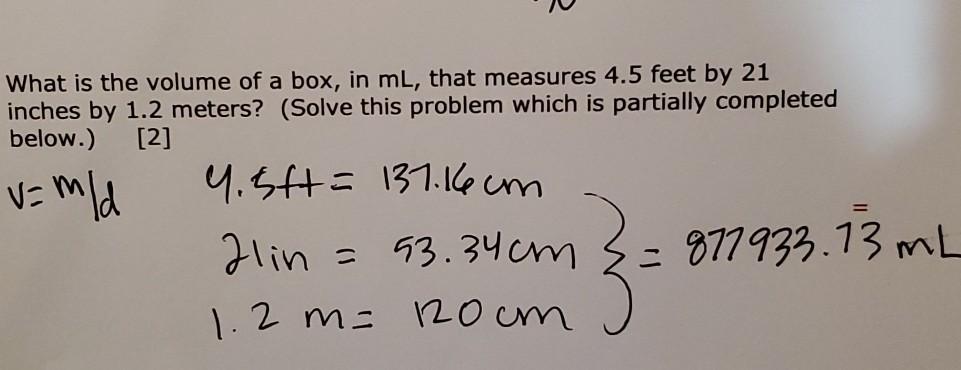 What is the volume of a box, in mL, that measures 4.5 feet by 21
inches by 1.2 meters? (Solve this problem which is partially completed
below.) [2]
v=m/d 4.5ft = 137.16 cm
21in = 53.34cm } = 877933.73 mL
1.2 m = 120 cm